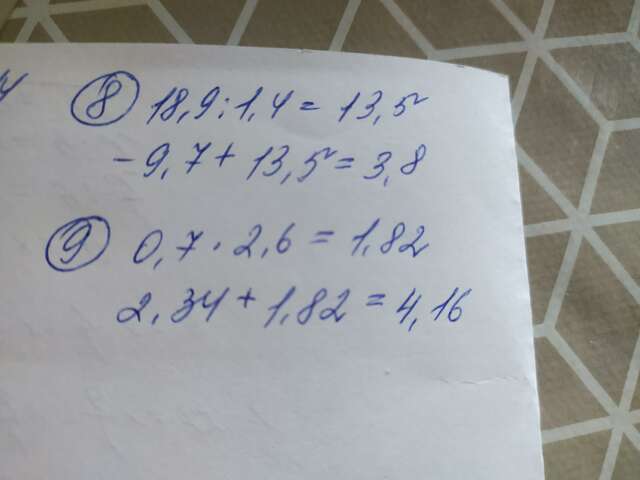 8 18,9:1,4 = 13,5
-9,7 + 13,5 = 3,8
9 0,7 · 2,6 = 1,82
2,34 + 1,82 = 4,16